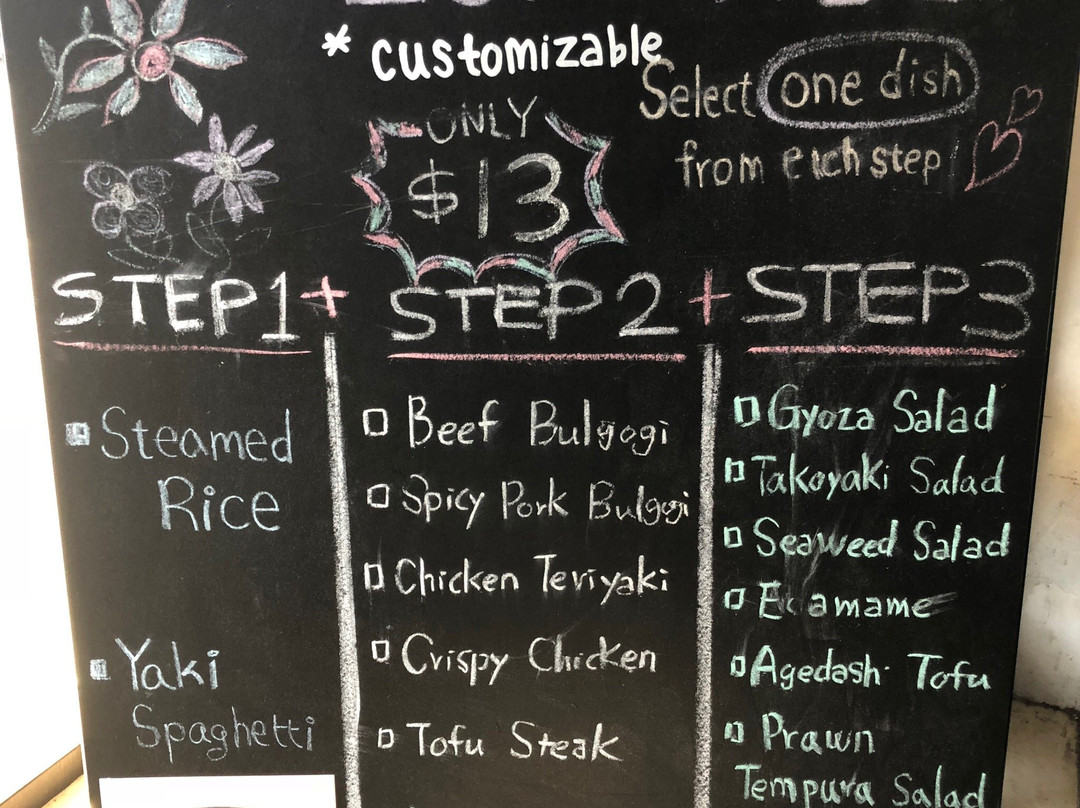 * customizable
Select one dish
from each step!
ONLY
$13
STEP1 + STEP2 + STEP3
Steamed
Rice
Yaki
Spaghetti
Beef Bulgogi
Spicy Pork Bulgogi
Chicken Teriyaki
Crispy Chicken
Tofu Steak
Gyoza Salad
Takoyaki Salad
Seaweed Salad
Edamame
Agedashi Tofu
Prawn
Tempura Salad